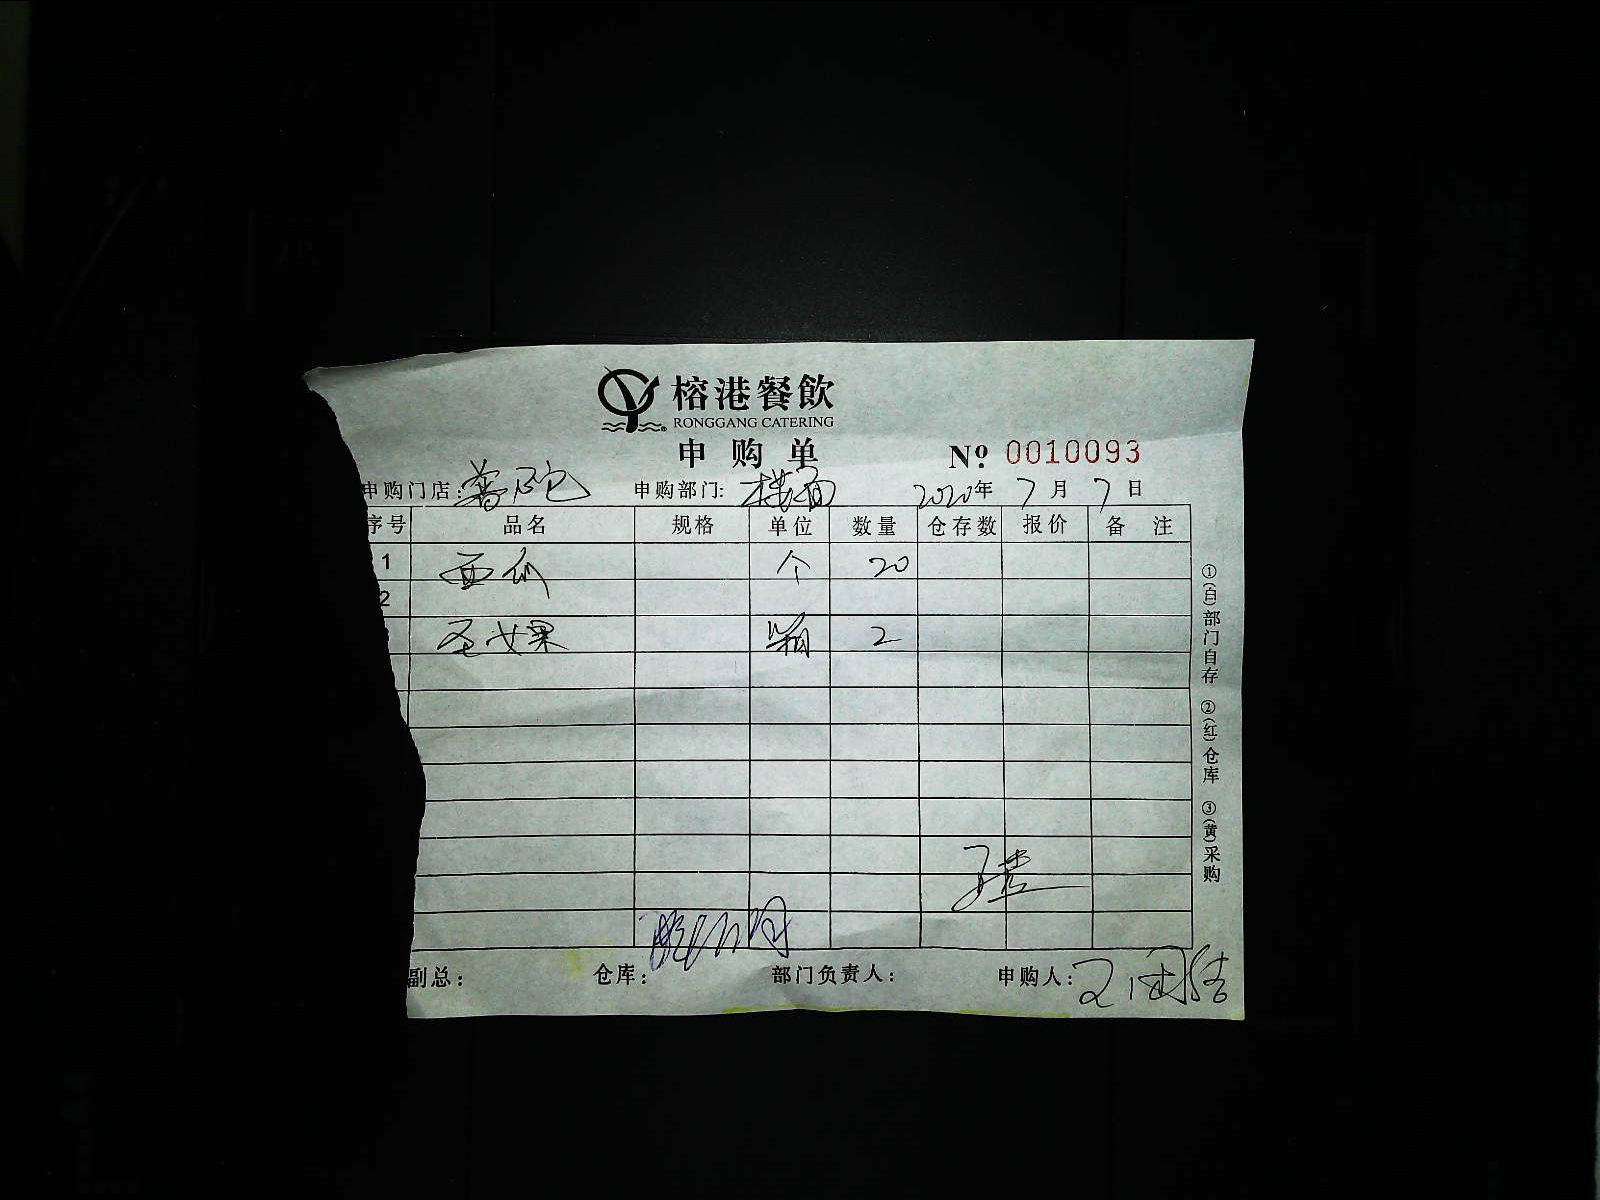 榕港餐飲
RONGGANG CATERING
申购单
№ 0010093
申购门店: 申购部门: 楼面 2020年 7月 7日
序号 品名 规格 单位 数量 仓存数 报价 备注
1 西瓜 个 20
2
圣女果 箱 2
副总: 仓库: 部门负责人: 申购人:
①(白)部门自存 ②(红)仓库 ③(黄)采购